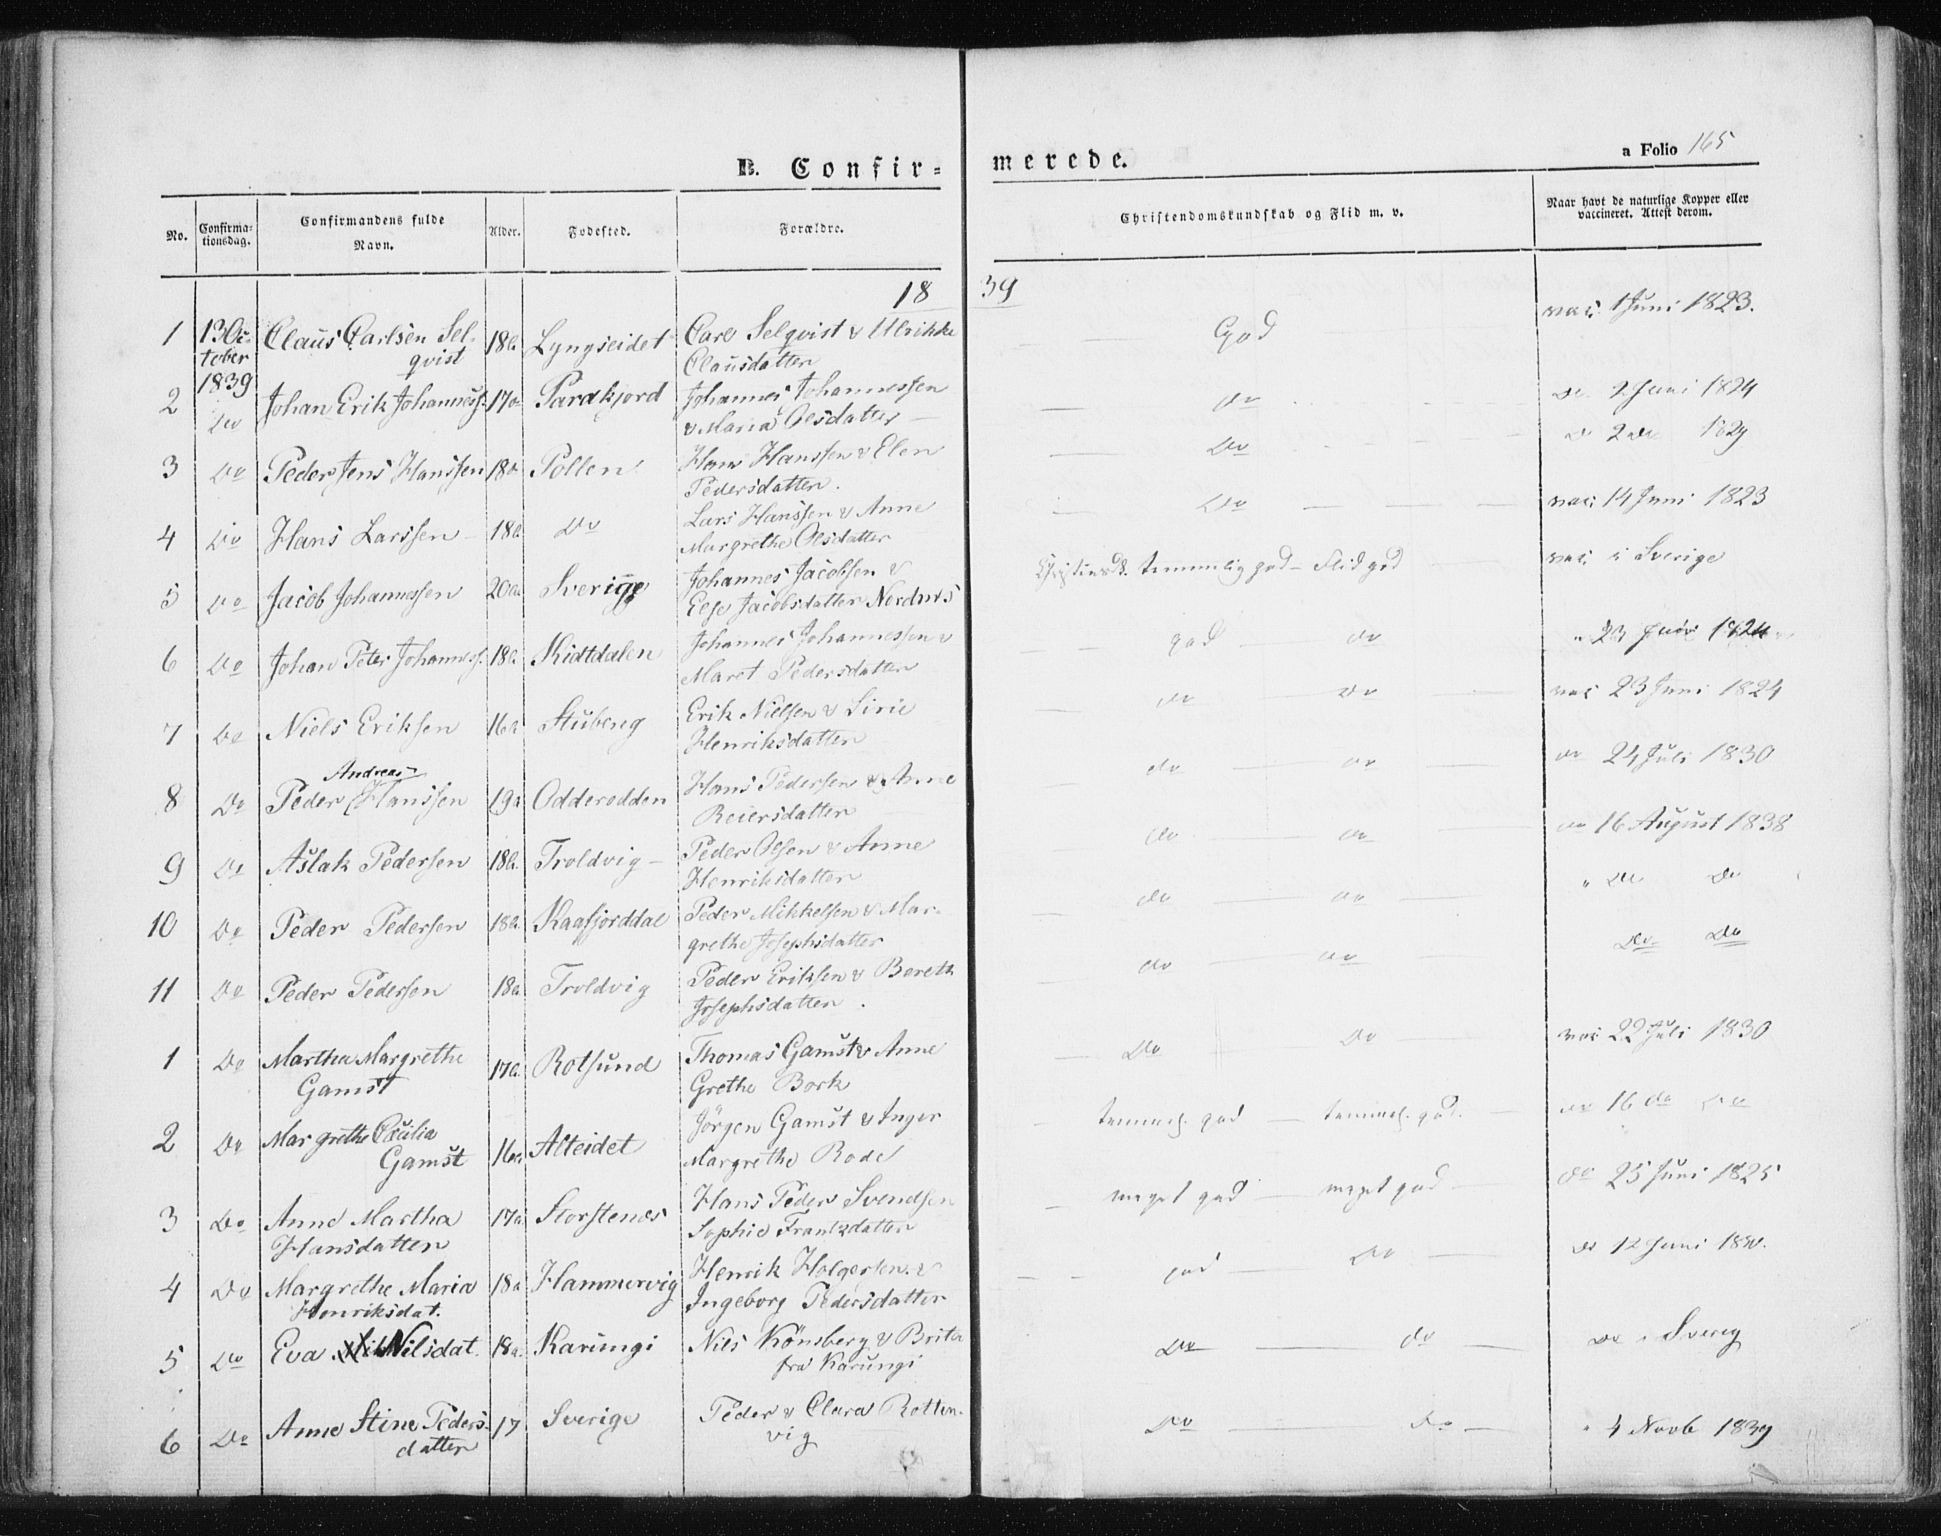 B. Confir- merede. a Folio 165
No. Confirma-tionsdag. Confirmandens fulde Navn. Alder. Fødested. Forældre. Christendomskundskab og Flid m. v. Naar havt de naturlige Kopper eller vaccineret. Attest derom.
18 39
1 13 Oc- Claus Carlsen Sel- 18 a. Lyngseidet Carl Selqvist & Ulrikke God vac: 1 Juni 1823.
tober qvist Clausdatter
1839
2 Do Johan Erik Johanness. 17 a. Parakjord Johannes Johannessen do Do 2 Juni 1824
& Maria Olsdatter
3 Do Peder Jens Hanssen 18 a Pollen Hans Hanssen & Elen Do 2 do 1829
Pedersdatter.
4 Do Hans Larssen 18 a Do Lars Hanssen & Anne Do vac: 14 Juni 1823
Margrethe Olsdatter
5 Do Jacob Johannessen 20 a. Sverige Johannes Jacobsen & temmelig god - Flid god vac. i Sverige
Else Jacobsdatter Nordnes
6 Do Johan Peter Johanness. 18 a. Kidtdalen Johannes Johannessen & god do 23 1824
Maret Pedersdatter
7 Do Niels Eriksen 16 a Stubeng Erik Nielsen & Sirie do do vac 23 Juni 1824
Henriksdatter
Andreas
8 Do Peder Hanssen 19 a Odderodden Hans Pedersen & Anne do do do 24 Juli 1830
Reiersdatter
9 Do Aslak Pedersen 18 a. Troldvig Peder Olsen & Anne do do do 16 August 1838
Henriksdatter
10 Do Peder Pedersen 18 a. Kaafjorddal Peder Mikkelsen & Mar- do do " Do Do
grethe Josephsdatter
11 Do Peder Pedersen 18 a. Troldvig Peder Eriksen & Bereth do do Do Do
Josephsdatter.
1 Do Martha Margrethe 17 a. Rotsund Thomas Gamst & Anne Do Do vac 22 Juli 1830
Gamst Grethe Bock
2 Do Margrethe Cæcilia 16 a. Alteidet Jörgen Gamst & Inger temmel. god temmel. god. do 16 do Do
Gamst Margrethe Rode
3 Do Anne Martha 17 a Storstenes Hans Peder Svendsen meget god meget god do 25 Juni 1825
Hansdatter Sophie Frantzdatter
4 Do Margrethe Maria 18 a Hammervig Henrik Holgersen & god Do do 12 Juni
Henriksdat. Ingeborg Pedersdatter
5 Do Eva Nilsdat. 18 a. Karungi Nils Könsberg & Brita Do do Do i Sverig
fra Karungi
6 Do Anne Stine Peders- 17 Sverige Peder & Clara Rotten- Do Do " 4 Novb 1839
datter vig